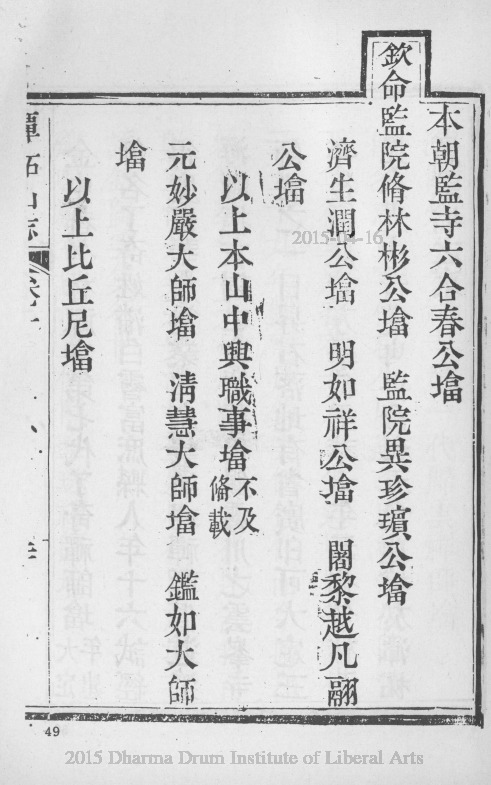 本朝監寺六合春公墖
欽命監院脩林彬公墖 監院異珍璸公墖
濟生潤公墖 明如祥公墖 闍黎越凡翮
公墖
以上本山中興職事墖不及
備載
元妙嚴大師墖 淸慧大師墖 鑑如大師
墖
以上比丘尼墖
潭柘山志
2015-04-16
49
2015 Dharma Drum Institute of Liberal Arts